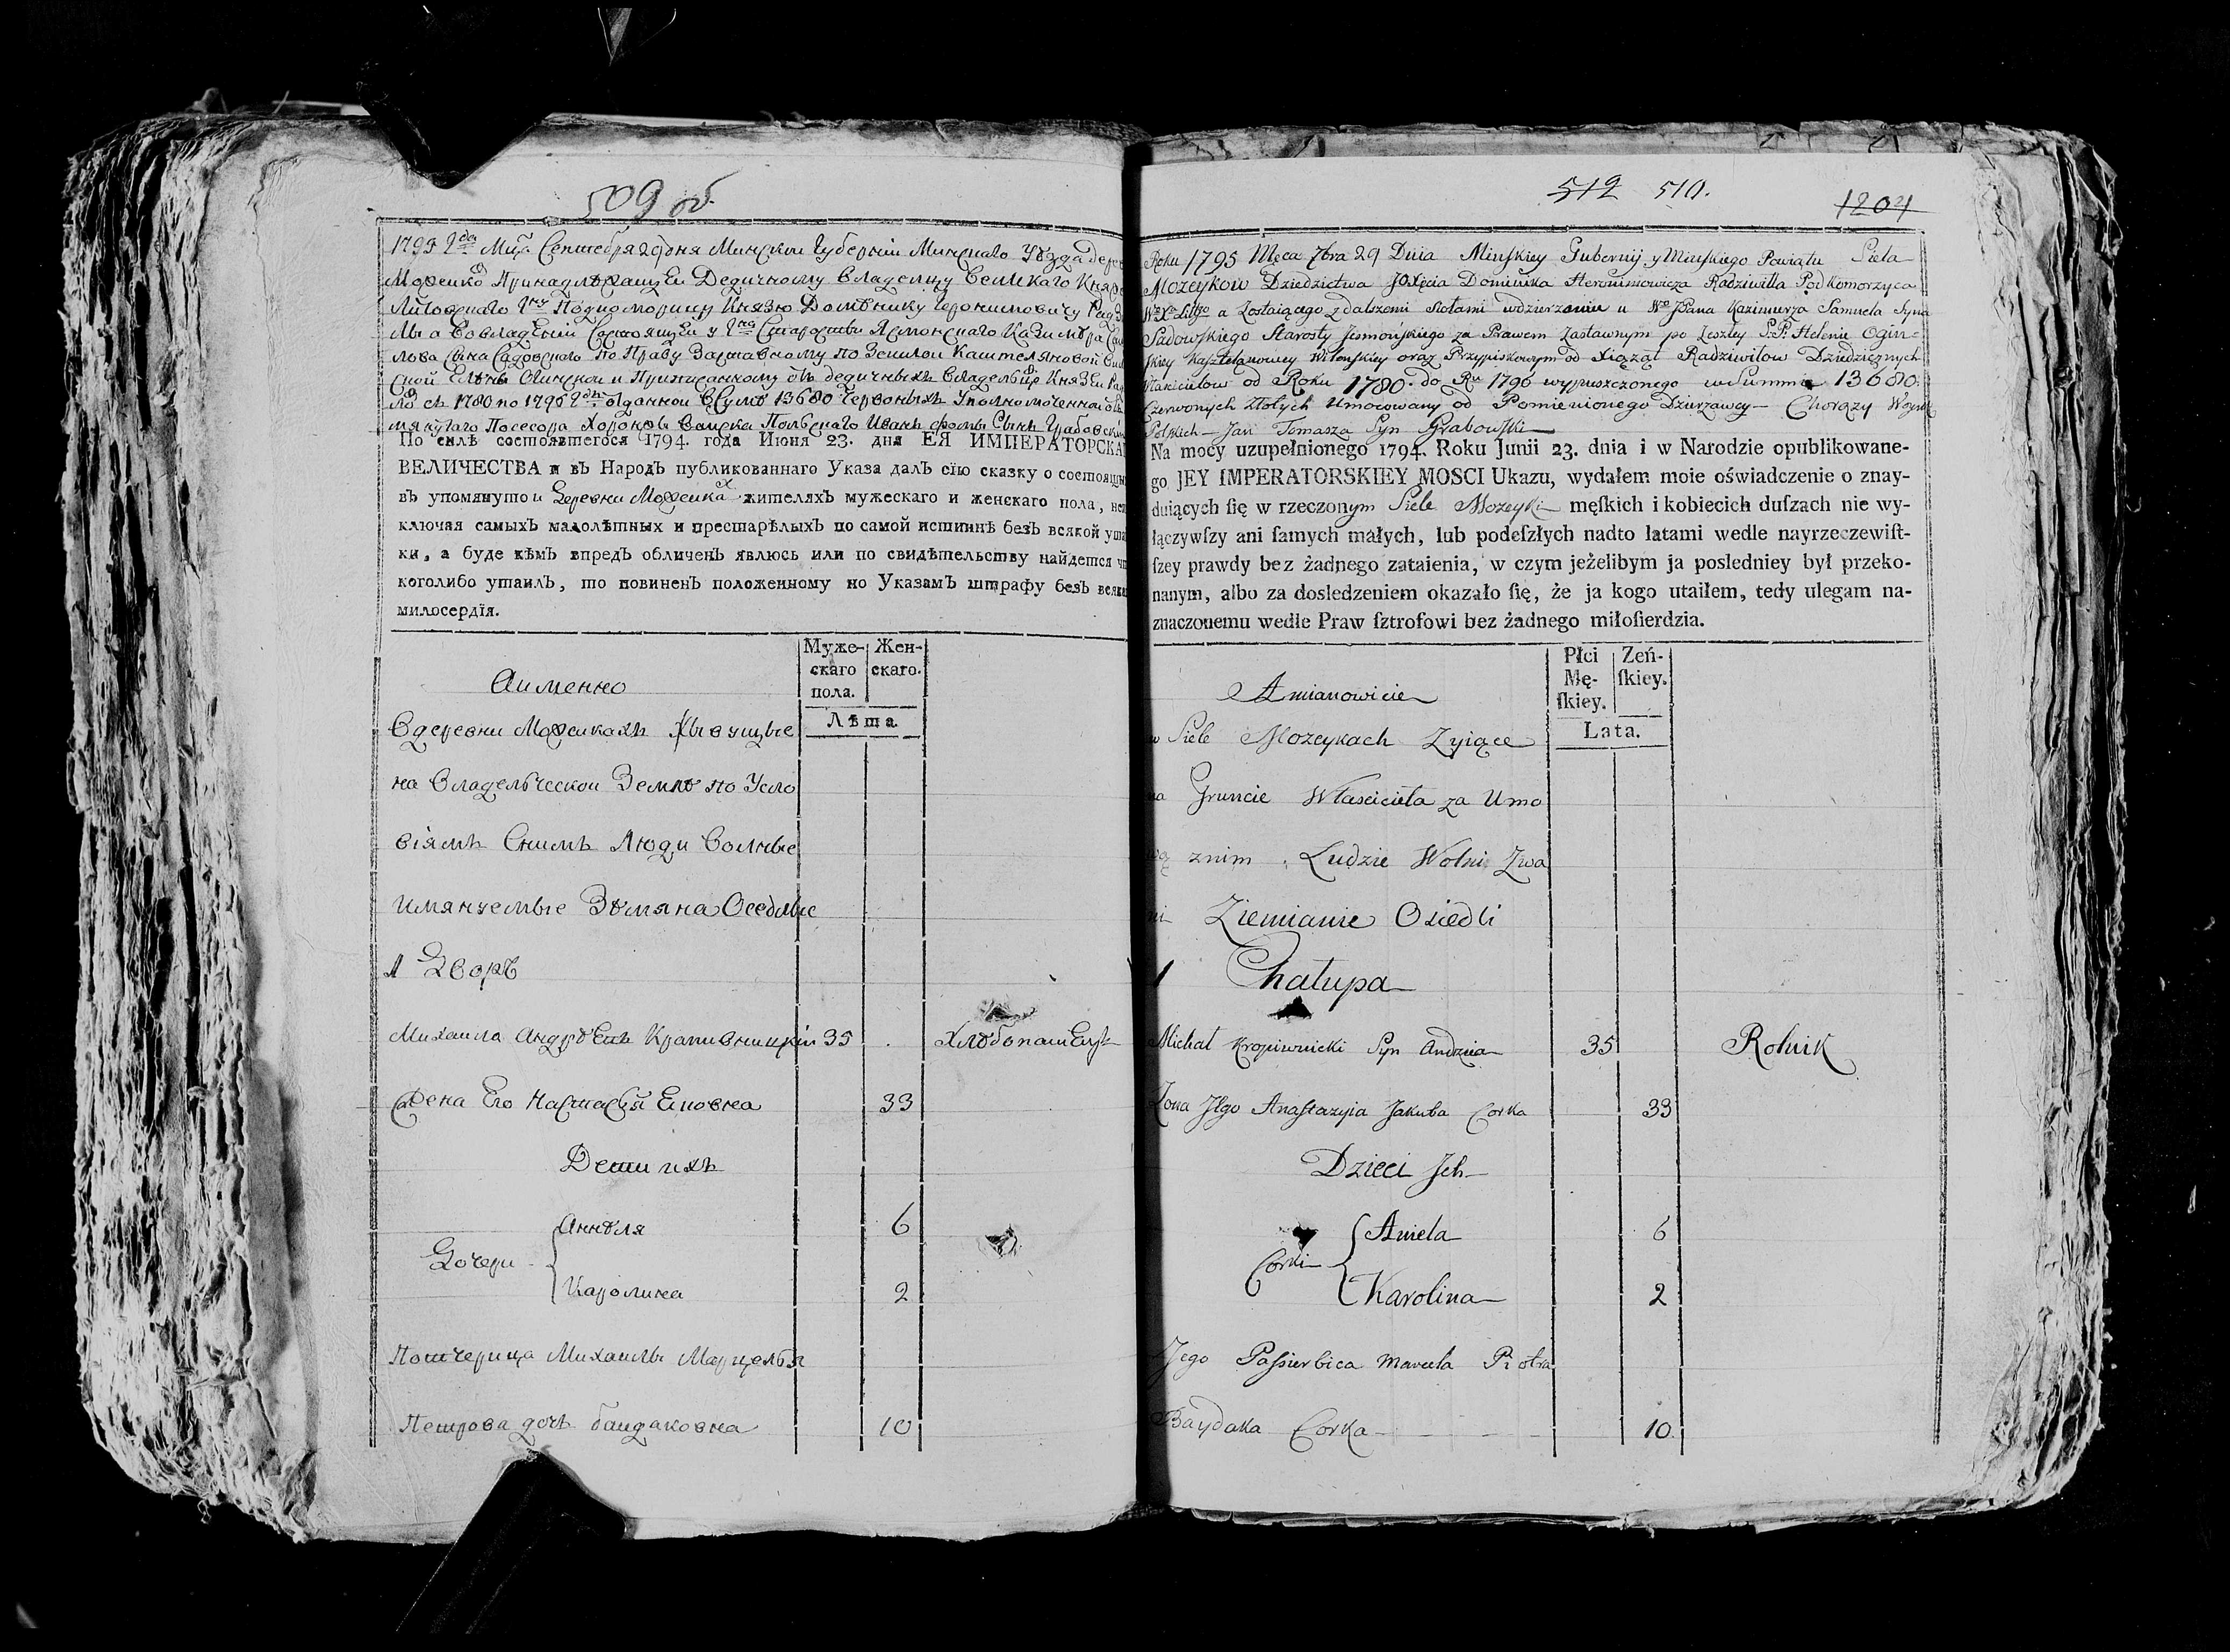 509 об.
1795 Года Мца Сентебря 29 дня Минской Губернии Минскаго Уезда
Можейко Принадлежащей Дедичному Владелцу Великаго
Литовскаго Подкоморию Князю Доменику Геронимовичу
а Во владении Состоящей у Старосты Казимера
сына Садовского по Праву Заставному по Зешлой Каштеляновой
Елены Огинской и Приписанному от дедичных Владельцов Князей
с 1780 по 1796 отданной в Суме 13680 Червоных Уполномоченной
Посесора Хоронжы Войска Польскаго Иван Фомы Сын Грабовский
По силѣ состоявшегося 1794. года Июня 23. дня ЕЯ ИМПЕРАТОРСКА
ВЕЛИЧЕСТВА и въ Народъ публикованнаго Указа далъ сїю сказку о состоящи
въ упомянутой Деревни Можейках жителяхъ мужескаго и женскаго пола, не
ключая самыхъ малолѣтныхъ и престарѣлыхъ по самой истиннѣ безъ всякой ута
ки, а буде кѣмъ впредъ обличенъ явлюсь или по свидѣтельству найдется
коголибо утаилъ, то повиненъ положенному по Указамъ штрафу безъ всяка
милосердїя.
Муже-скаго пола. Жен-скаго.
Аименно
Лѣта
Вдеревни Можейкахъ Живущые
на Владельческой Землѣ по Усло
віямъ Снимъ Люди Волные
Имянуемые Земяна Оседлые
1 Дворъ
Михаила Андрѣевъ Крапивницкій 35 Хлѣбопашецъ
Жена Его Настасья 33
Дети ихъ
Дочери
Аннѣля 6
Каролина 2
Потчерица Михаилы Марцелья
Петрова дочь Байдаковна 10
512 510.
1204
Roku 1795 Męca 7bra 29 Dnia Minskiey Gubernij y Minskiego Powiatu Sieła
Mozeykow Dziedzictwa JOXięcia Dominika Hieronimowicza Radziwiłła Podkomorzyca
WXLitgo a Zostaiącego z dalszemi Siołami wdzierzeniu u Wo JPana Kazimierza Samuela Syna
Sadowskiego Starosty Jesmońskiego za Prawem Zastawnym po Zeszłey Helenie Ogiń-
skiey Kasztelanowey Wileńskiey oraz Przypiskowym od Xiążąt Radziwiłow Dziedzicznych
od Roku 1780. do Ru 1796 wypuszczonego w Summie 13680.
Czerwonych złotych Umocowany od Pomienionego Dzierżawcy — Chorąży Woysk
Polskich — Jan Tomasza Syn Grabowski
Na mocy uzupełnionego 1794. Roku Junii 23. dnia i w Narodzie opublikowane-
go JEY IMPERATORSKIEY MOSCI Ukazu, wydałem moie oświadczenie o znay-
duiących ſię w rzeczonym Siele Mozeyki męſkich i kobiecich duſzach nie wy-
łączywſzy ani ſamych małych, lub podeſzłych nadto latami wedle nayrzeczewiſt-
ſzey prawdy bez żadnego zataienia, w czym jeżelibym ja posledniey był przeko-
nanym, albo za dosledzeniem okazało ſię, że ja kogo utaiłem, tedy ulegam na-
znaczonemu wedle Praw ſztrofowi bez żadnego miłoſierdzia.
Płci Mę-ſkiey. Zeń-ſkiey.
Amianowicie
Lata.
w Siele Mozeykach Zyiące
na Gruncie Własciciela za Umo
wą znim Ludzie Wolni Zwa
ni Ziemianie Osiedli
1 Chałupa
Michał Kropiwnicki Syn Andrzeia 35 Rolnik
Zona Jego Anastazyia Jakuba Corka 33
Dzieci Jch
Corki
Aniela 6
Karolina 2
Jego Pasierbica Marcela Piotra
Baydaka Corka 10